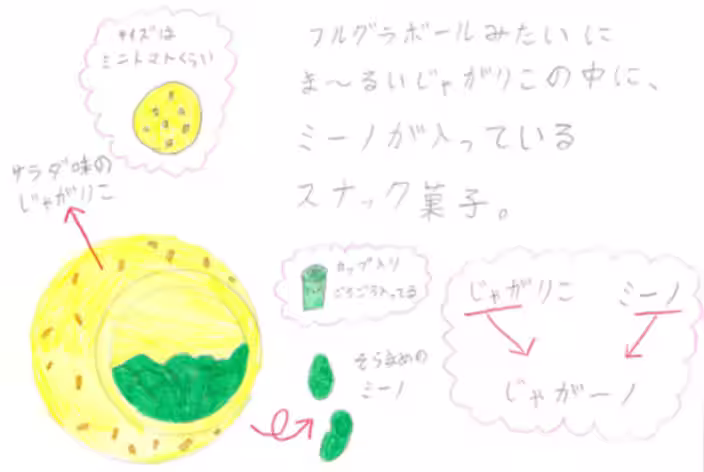 サイズは
ミニトマトくらい
フルグラボールみたいに
ま〜るいじゃがりこの中に、
ミーノが入っている
スナック菓子。
サラダ味の
じゃがりこ
カップ入り
ごろごろ入ってる
そらまめの
ミーノ
じゃがりこ ミーノ
じゃがーノ